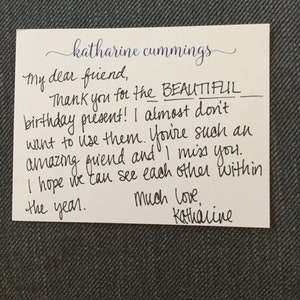 katharine cummings
My dear friend,
Thank you for the BEAUTIFUL
birthday present! I almost don't
want to use them. You're such an
amazing friend and I miss you.
I hope we can see each other within
the year. Much Love,
Katharine